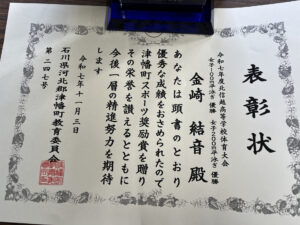 表彰状
令和七年度北信越高等学校体育大会
女子100m平泳ぎ 優勝
女子200m平泳ぎ 優勝
金崎 結音 殿
あなたは頭書のとおり
優秀な成績をおさめられたので
津幡町スポーツ奨励賞を贈り
その栄誉を讃えるとともに
今後一層の精進努力を期待
します
令和七年十一月三日
石川県河北郡津幡町教育委員会
第二四七号